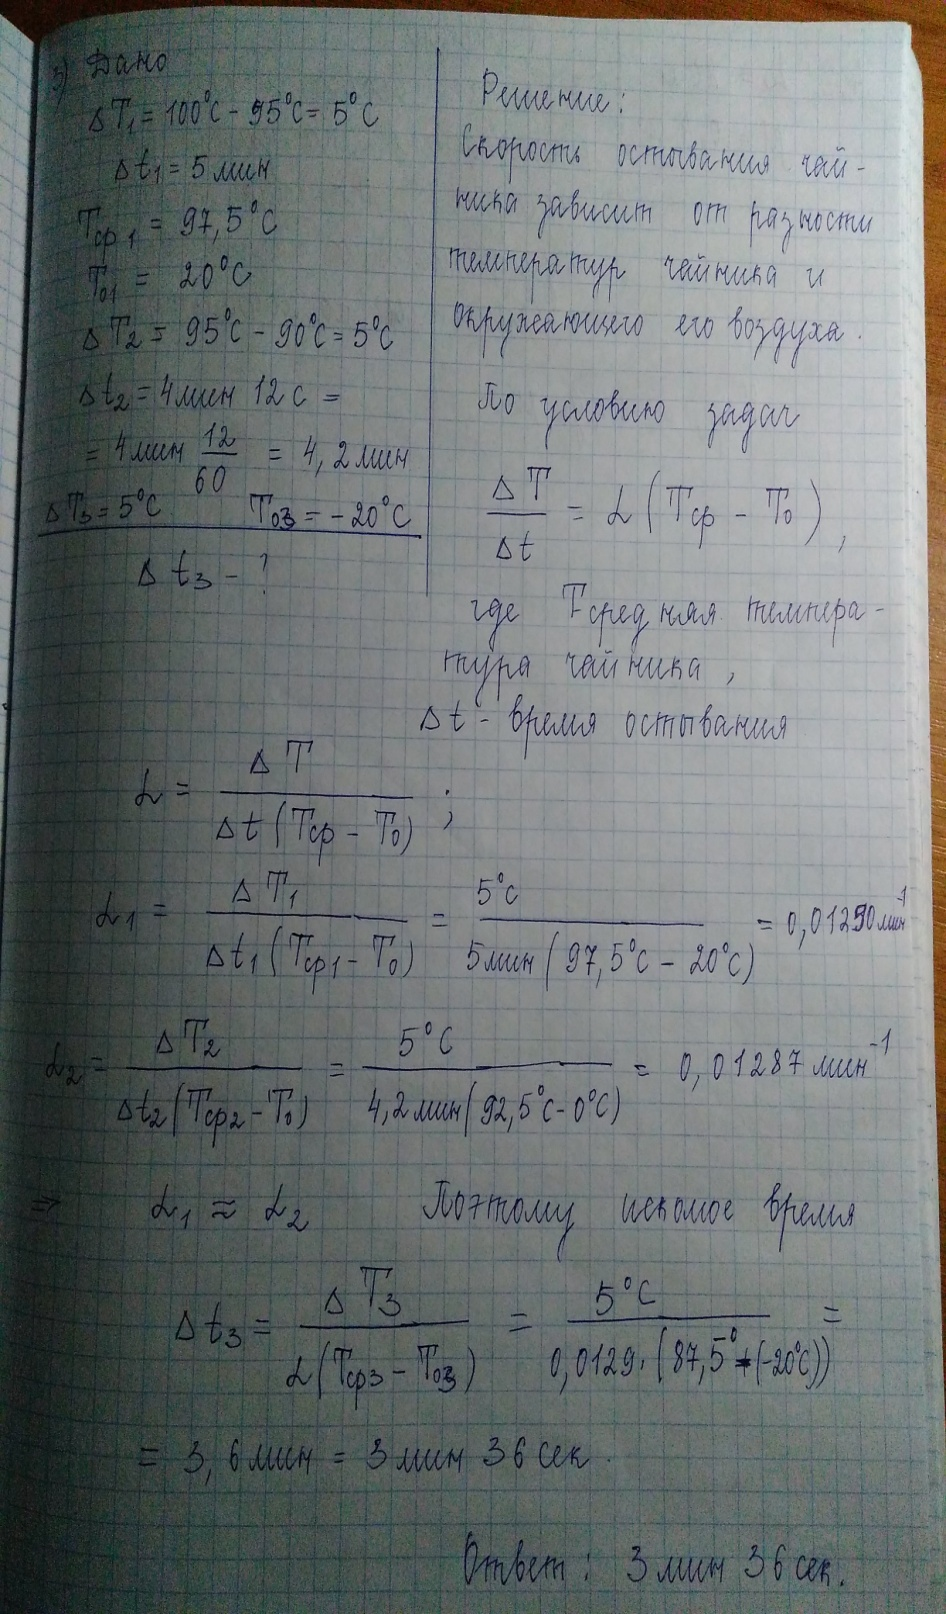 3) Дано
ΔT₁ = 100°C - 95°C = 5°C
Δt₁ = 5 мин
Tср 1 = 97,5°C
T₀₁ = 20°C
ΔT₂ = 95°C - 90°C = 5°C
Δt₂ = 4 мин 12 с =
= 4 мин 12/60 = 4,2 мин
ΔT₃ = 5°C T₀₃ = -20°C
Δt₃ - ?
Решение:
Скорость остывания чай-
ника зависит от разности
температур чайника и
окружающего его воздуха.
По условию задач
ΔT/Δt = α(Tср - T₀),
где T средняя темпера-
тура чайника,
Δt - время остывания
α = ΔT / Δt(Tср - T₀) ;
α₁ = ΔT₁ / Δt₁(Tср1 - T₀) = 5°C / 5 мин(97,5°C - 20°C) = 0,01290 мин⁻¹
α₂ = ΔT₂ / Δt₂(Tср2 - T₀) = 5°C / 4,2 мин(92,5°C - 0°C) = 0,01287 мин⁻¹
⇒ α₁ ≈ α₂ Поэтому искомое время
Δt₃ = ΔT₃ / α(Tср3 - T₀₃) = 5°C / 0,0129 · (87,5° - (-20°C)) =
= 3,6 мин = 3 мин 36 сек.
Ответ: 3 мин 36 сек.